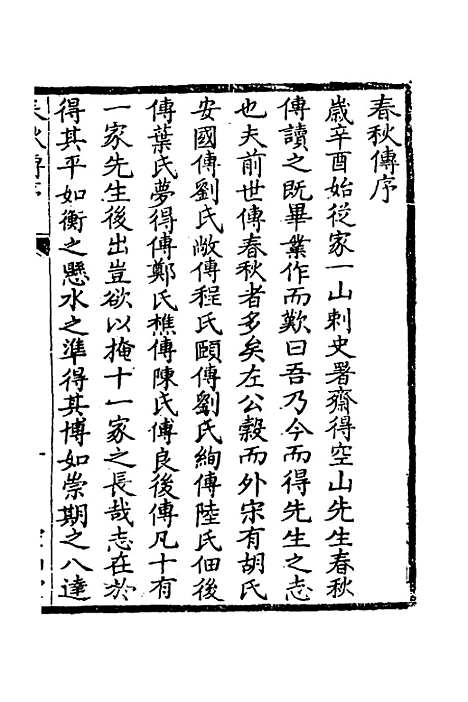 春秋傳序
歲辛酉始從家一山刺史署齋得空山先生春秋
傳讀之既畢業作而歎曰吾乃今而得先生之志
也夫前世傳春秋者多矣左公榖而外宋有胡氏
安國傳劉氏敞傳程氏頤傳劉氏絢傳陸氏佃後
傳葉氏夢得傳鄭氏樵傳陳氏傅良後傳凡十有
一家先生後出豈欲以掩十一家之長哉志在於
得其平如衡之懸水之準得其博如崇期之八達
春秋傳序